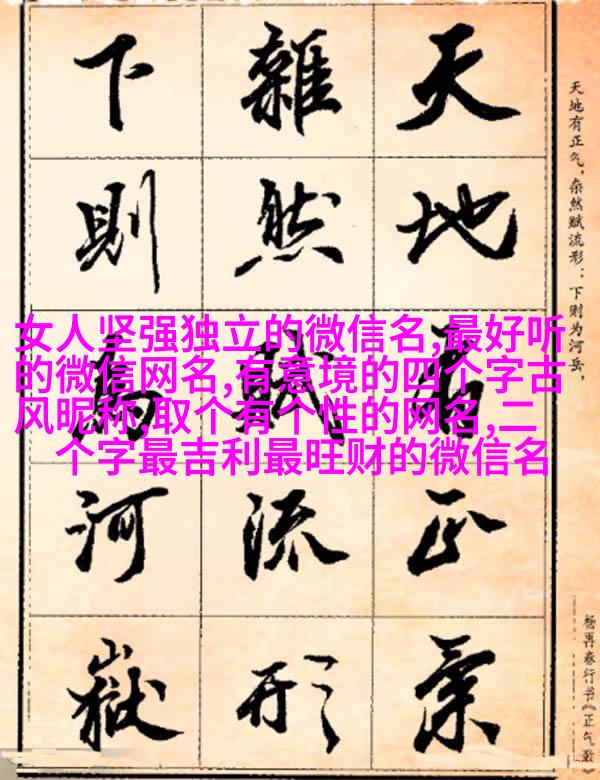 女人坚强独立的微信名,最好听
的微信网名,有意境的四个字古
风昵称,取个有个性的网名,二
个字最吉利最旺财的微信名
天地有正气，杂然赋流形：下则为河岳，
杨再春行书《正气歌》
天地有正氣
雜然賦流形
下則為河嶽